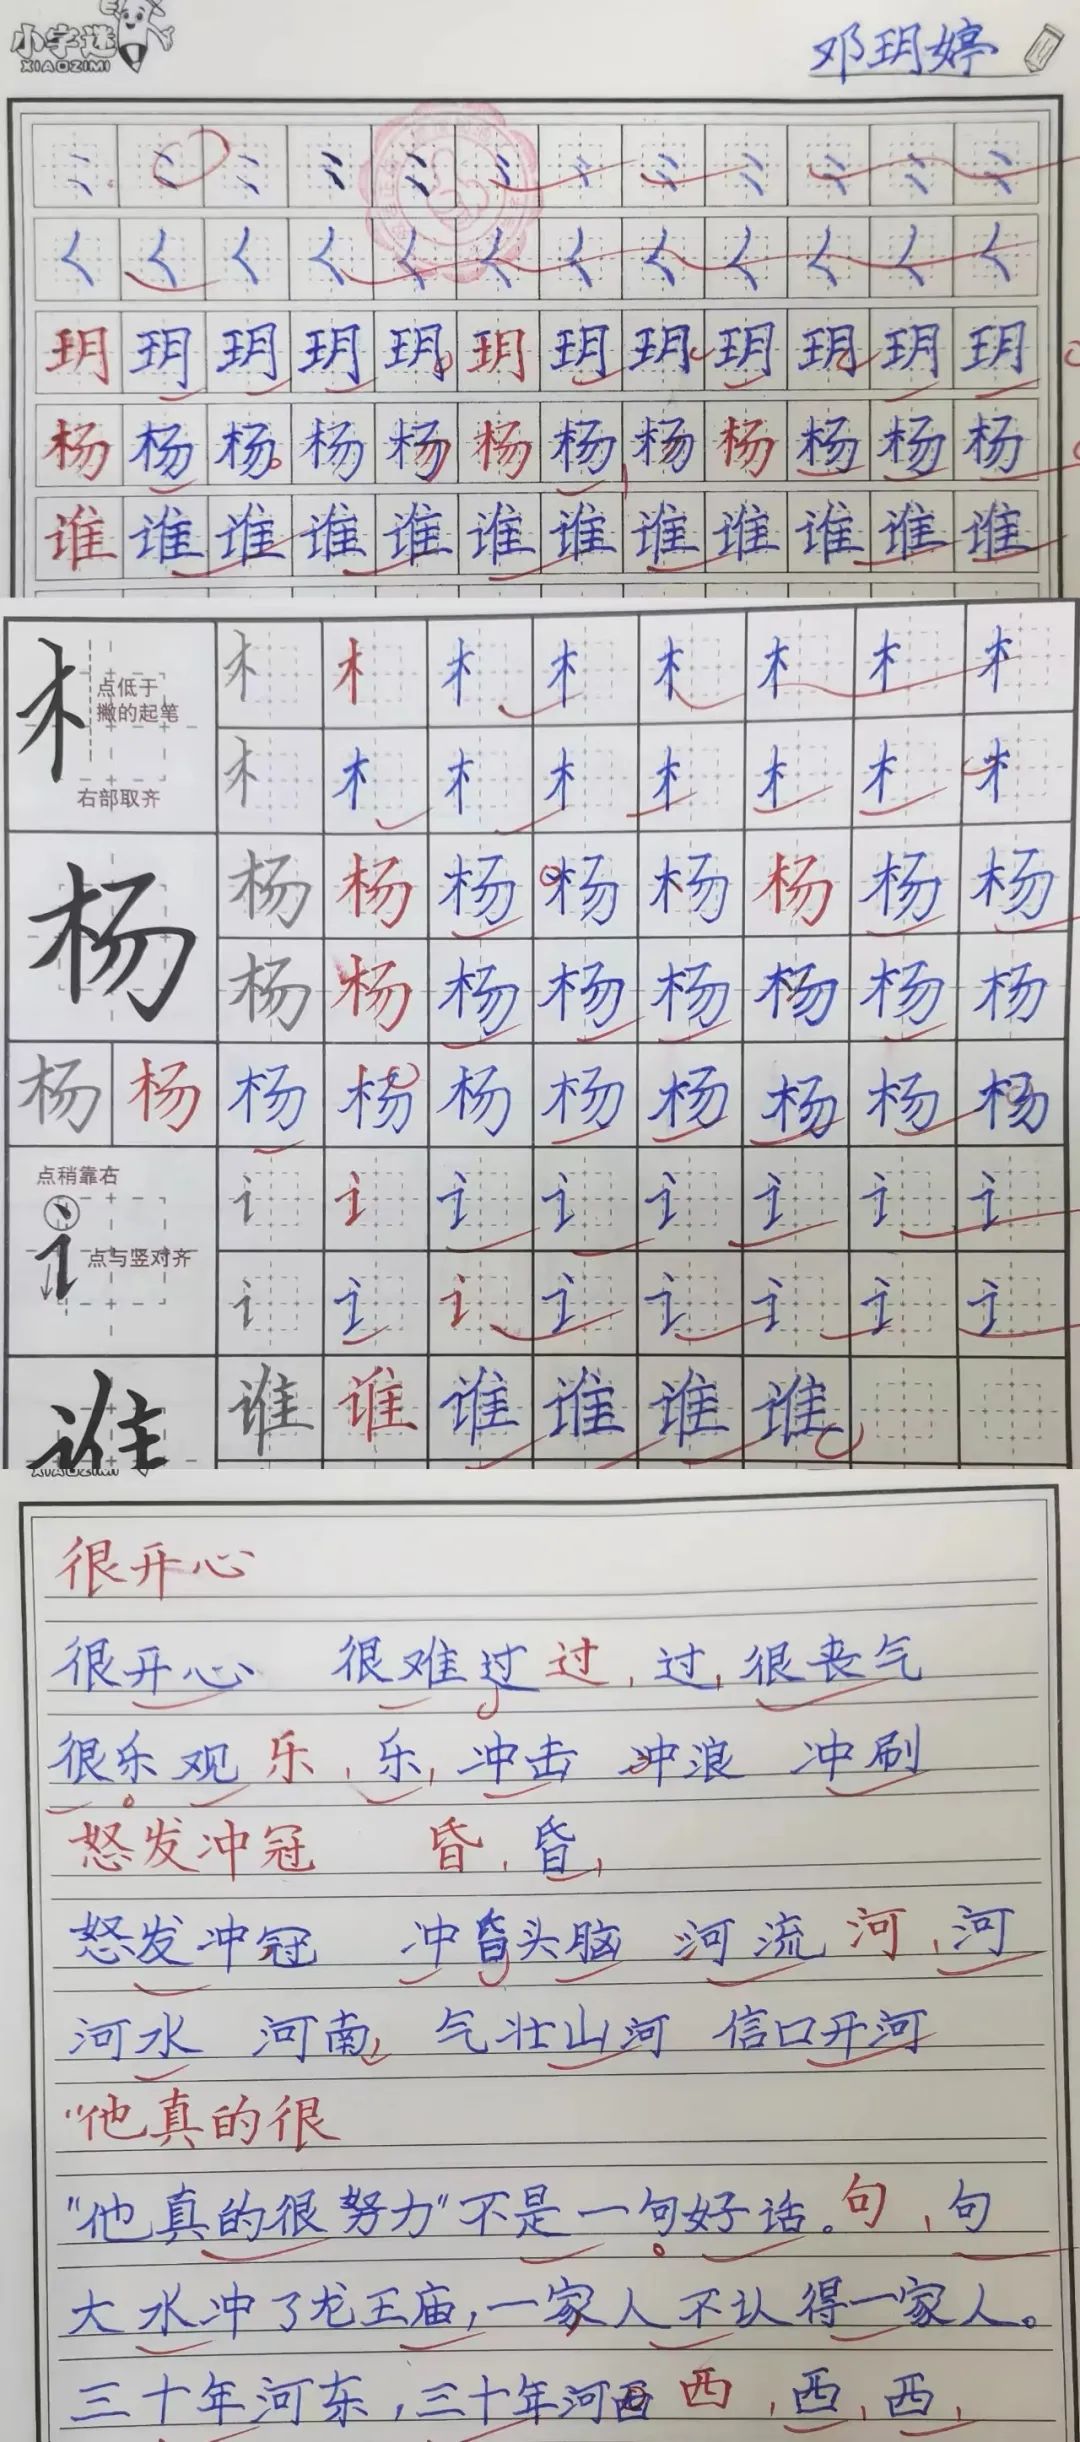 小字迷
XIAOZIMI
邓玥婷
玥玥玥玥玥玥玥玥玥玥玥玥
杨杨杨杨杨杨杨杨杨杨杨杨
谁谁谁谁谁谁谁谁谁谁谁谁
点低于
撇的起笔
右部取齐
杨 杨杨杨杨杨杨杨杨
杨杨杨杨杨杨杨杨
杨杨杨杨杨杨杨杨杨杨
点稍靠右
点与竖对齐
讠讠讠讠讠讠讠讠
讠讠讠讠讠讠讠讠
谁 谁谁谁谁谁谁
XIAOZIMI
很开心
很开心 很难过过,过,很丧气
很乐观 乐,乐,冲击 冲浪 冲刷
怒发冲冠 昏,昏,
怒发冲冠 冲昏头脑 河流 河,河
河水 河南, 气壮山河 信口开河
“他真的很
“他真的很努力”不是一句好话。句,句
大水冲了龙王庙,一家人不认得一家人。
三十年河东,三十年河西 西,西,西,